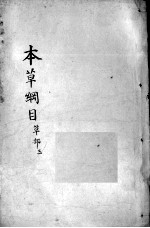 本草綱目草部二